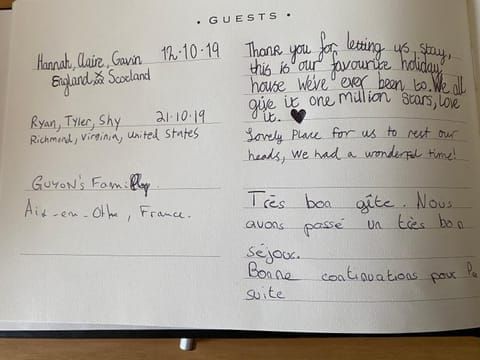 • GUESTS •
Hannah, Claire, Gavin 12.10.19
England Scotland
Thank you for letting us stay,
this is our favourite holiday
house We've ever been to. We all
give it one million stars, love
it. ♥
Ryan, Tyler, Shy 21.10.19
Richmond, Virginia, United States
Lovely Place for us to rest our
heads, We had a wonderful time!
GUYON's Family
Aix-en-Othe, France.
Très bon gîte. Nous
avons passé un très bon
séjour.
Bonne continuations pour la
suite